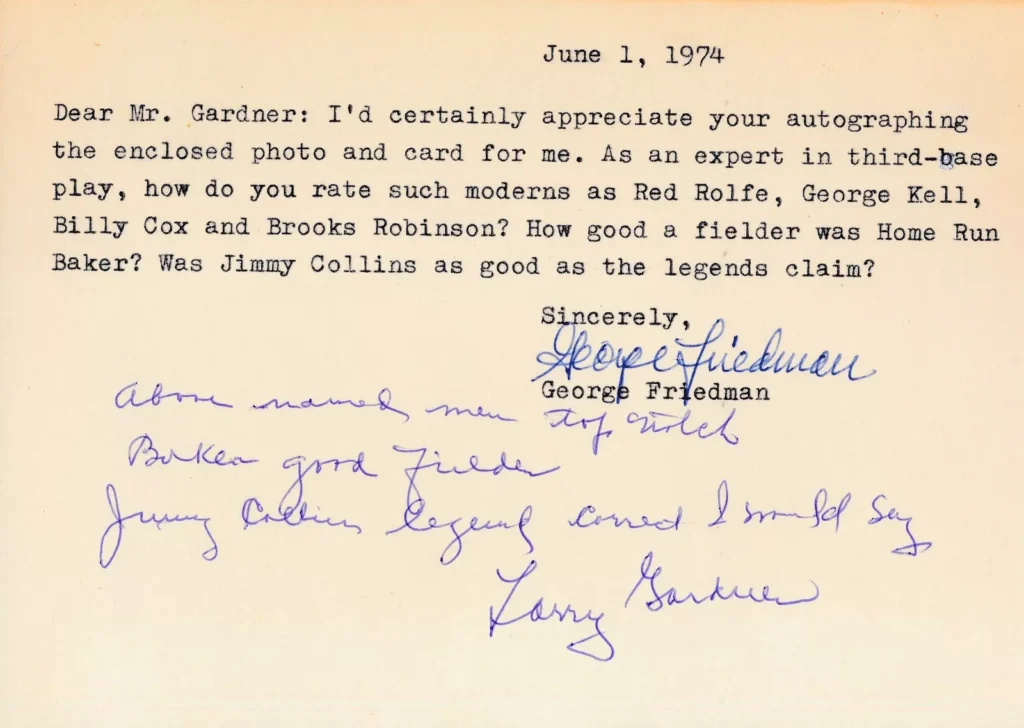 June 1, 1974
Dear Mr. Gardner: I'd certainly appreciate your autographing
the enclosed photo and card for me. As an expert in third-base
play, how do you rate such moderns as Red Rolfe, George Kell,
Billy Cox and Brooks Robinson? How good a fielder was Home Run
Baker? Was Jimmy Collins as good as the legends claim?
Sincerely,
George Friedman
George Friedman
Above named men top notch
Baker good fielder
Jimmy Collins legend correct I would say
Larry Gardner